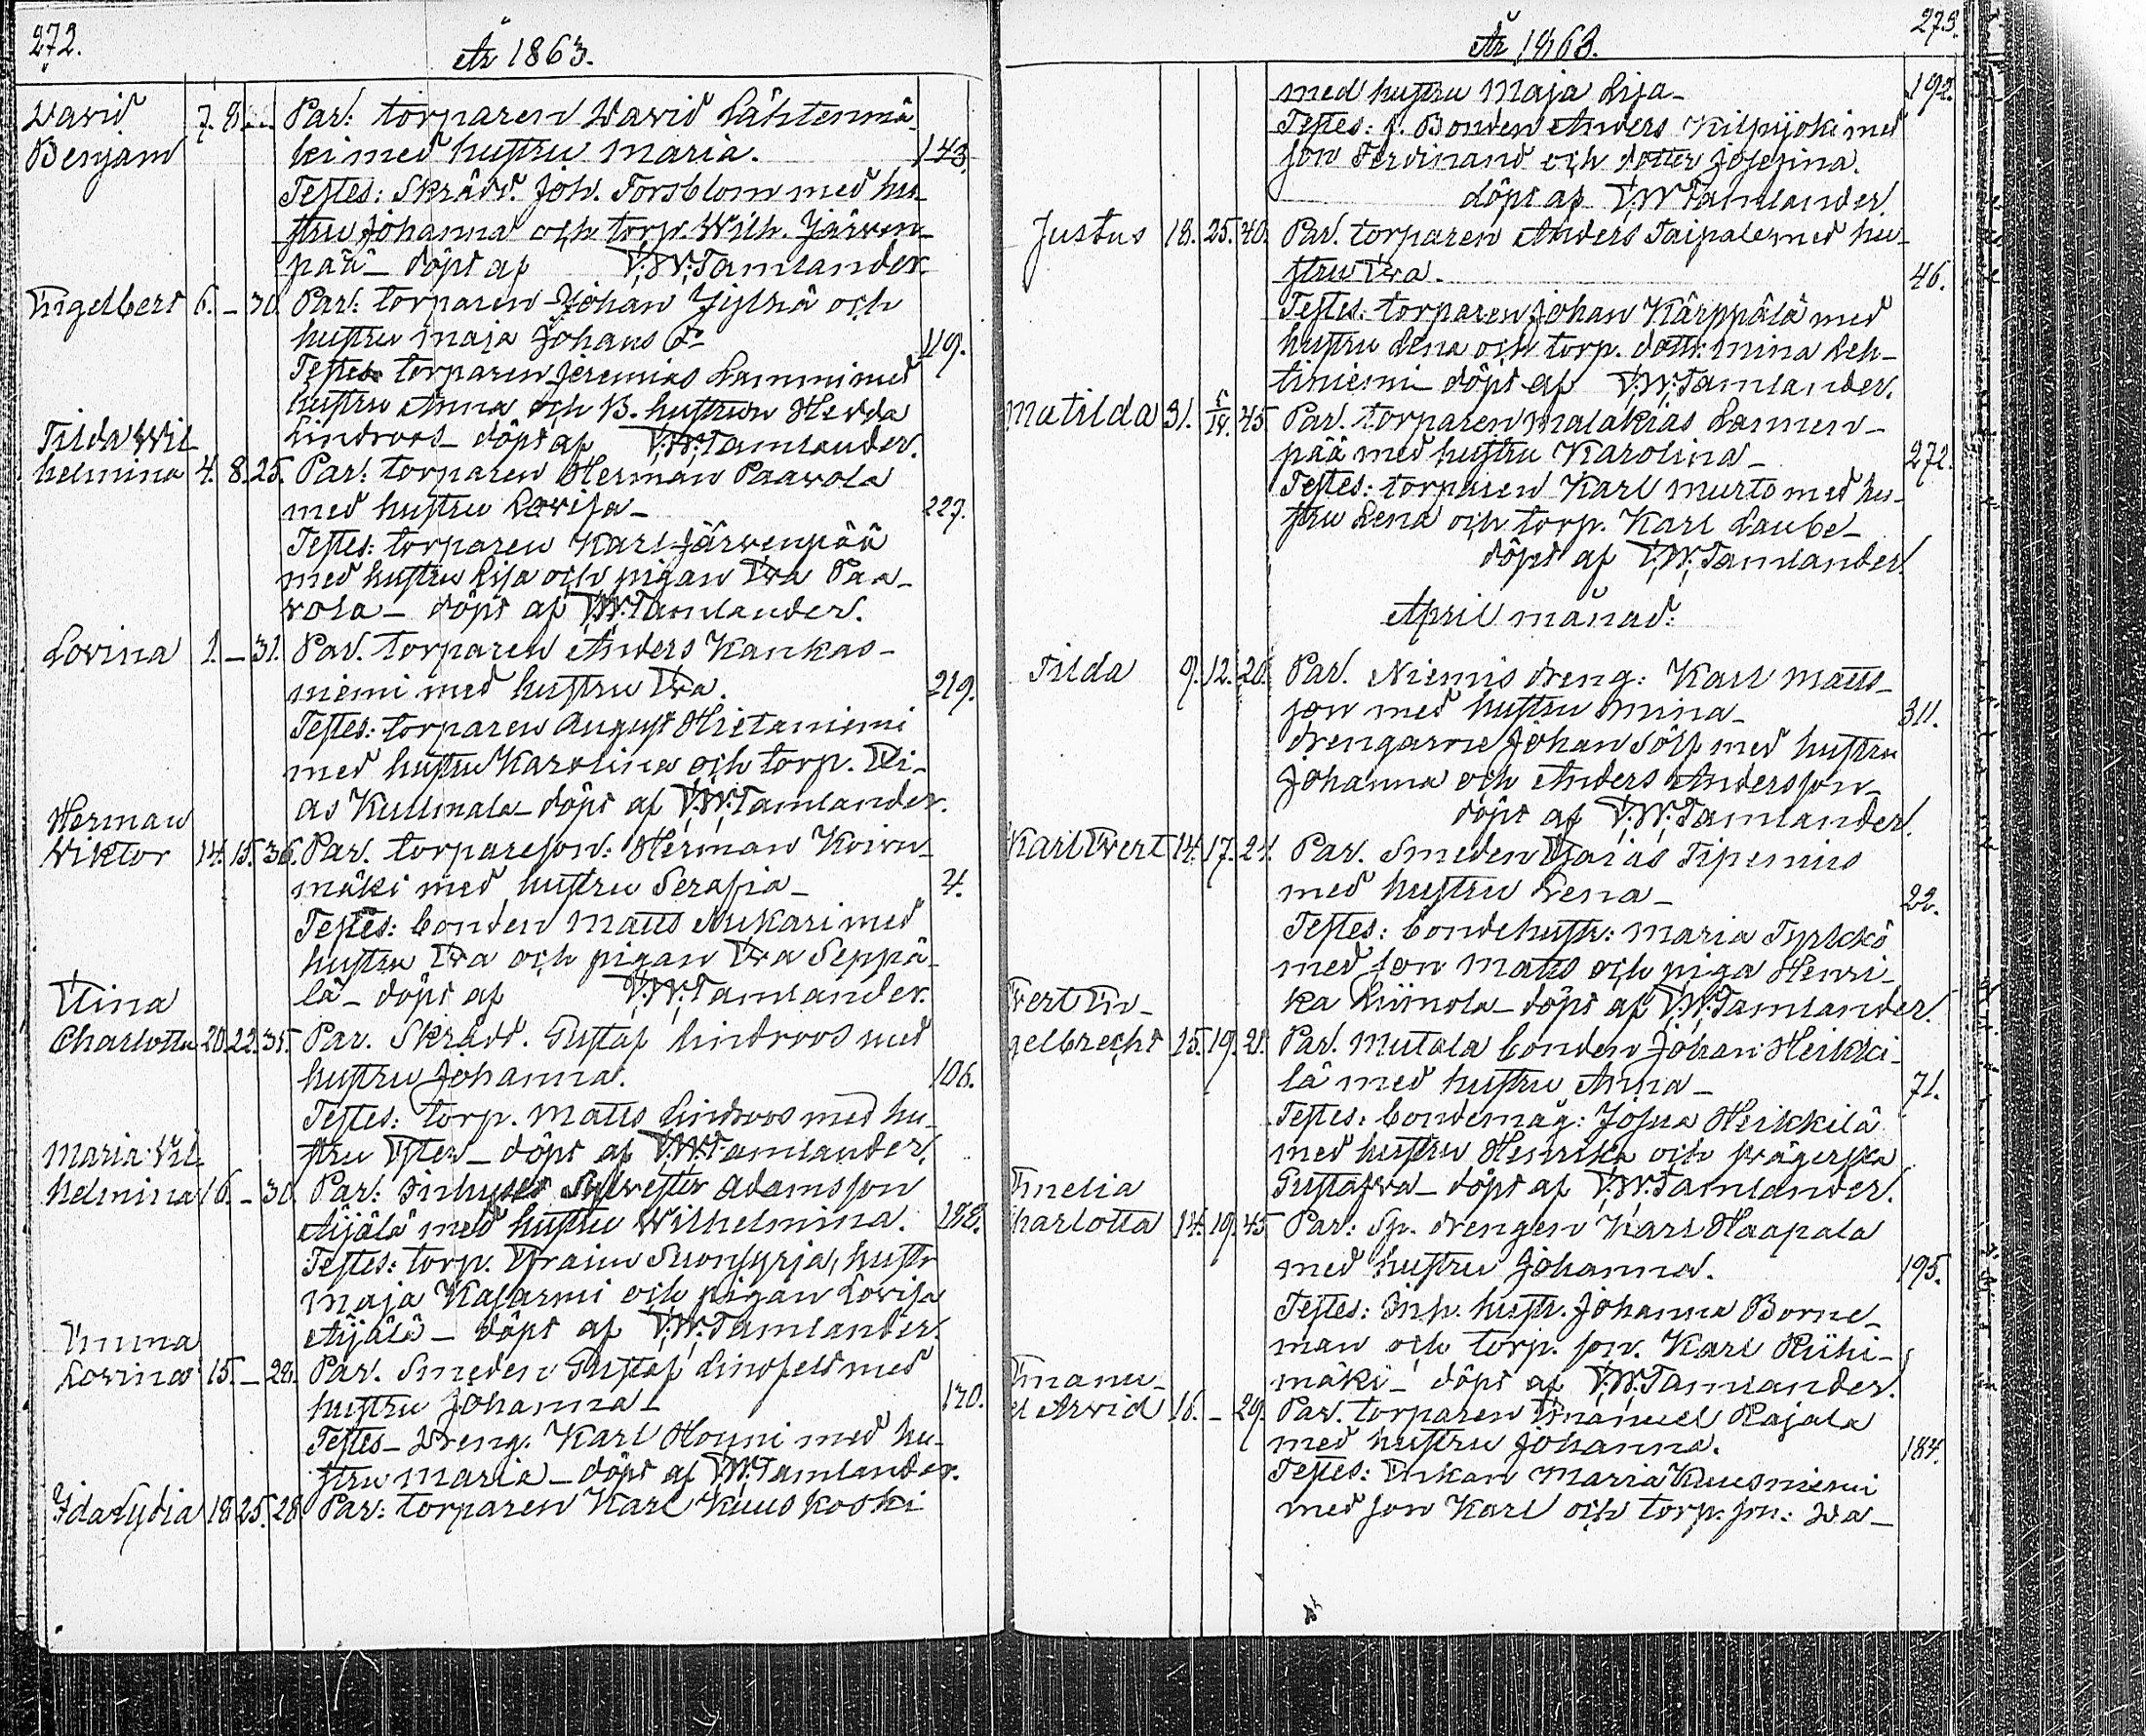 272.
År 1863.
David 7. 8. Par: torparen David Lähtenmä-
Benjam ki med hustru Maria. 143.
Testes: Skrädd. Joh. Forsblom med hu-
stru Johanna och torp. Wilh. Järven-
pää – döpt af F.W. Tamlander.
Engelbert 6. – 30. Par: torparen Johan
hustru Maja Johans Dr 119.
Testes torparen Jeremias Lammi med
hustru Anna och B. hustrun Hedda
Tilda Wil- Lindroos – döpt af F.W. Tamlander.
helmina 4. 8. 25. Par: torparen Herman Paavola
med hustru Lovisa – 227.
Testes: torparen Karl Järvenpää
med hustru Lisa och pigan Eva Paa-
vola – döpt af F.W. Tamlander.
Lovina 1. – 31. Par. torparen Anders Kankas-
niemi med hustru Eva. 219.
Testes: torparen August Hietaniemi
med hustru Karolina och torp. Eli-
as Kulmala – döpt af F.W. Tamlander.
Herman
Viktor 14. 15. 36. Par. torpareson: Herman Koivu-
mäki med hustru Serafia – 4.
Testes: bonden Matts Ankari med
hustru Eva och pigan Eva Seppä-
Elina lä – döpt af F.W. Tamlander.
Charlotta 20. 22. 35. Par. Skrädd. Gustaf Lindroos med
hustru Johanna. 106.
Testes: torp. Matts Lindroos med hu-
Maria Vil- stru Ester – döpt af F.W. Tamlander.
helmina 16. – 30. Par: Inhyses Sylvester Adamsson
Äijälä med hustru Wilhelmina. 182.
Testes: torp. Efraim Suonsyrjä, hustr
Maja Kasarmi och pigan Lovisa
Emma Äijälä – döpt af F.W. Tamlander.
Lovina 15. – 28. Par. Smeden Gustaf Lindfeld med
hustru Johanna – 170.
Testes – Dreng. Karl Honni med hu-
stru Maria – döpt af F.W. Tamlander.
Ida Lydia 18. 25. 28. Par: torparen Karl Kuuskoski
273.
År 1863.
med hustru Maja Lisa – 192.
Testes: f. Bonden Anders Kilpijoki med
son Ferdinand och dotter Josefina.
döpt af F.W. Tamlander.
Justus 18. 25. 40. Par. torparen Anders Taipale med hu-
stru Eva. 46.
Testes: torparen Johan Kärppälä med
hustru Lena och torp. dottr: Mina Leh-
tiniemi – döpt af F.W. Tamlander.
Matilda 31. 5/IV. 45. Par. torparen Malakias Lammen-
pää med hustru Karolina – 272.
Testes: torparen Karl Murto med hu-
stru Lena och torp. Karl Laube –
döpt af F.W. Tamlander.
April månad:
Tilda 9. 12. 20. Par. Niemis dreng: Karl Matts-
son med hustru Mina – 311.
drengarne Johan Sölf med hustru
Johanna och Anders Andersson –
döpt af F.W. Tamlander.
Karl Evert 14. 17. 24. Par. Smeden Esaias Tipenius
med hustru Lena – 22.
Testes: bondehustr: Maria Tyrkkö
med son Matts och piga Henri-
Evert En- ka Liinola – döpt af F.W. Tamlander.
gelbrecht 15. 19. 21. Par. Mutala bonden Johan Heikki-
lä med hustru Anna – 71.
Testes: bondemåg: Josua Heikkilä
med hustru Henrika och svägerska
Emelia Gustafva – döpt af F.W. Tamlander.
harlotta 14. 19. 45. Par: Sp. drengen Karl Haapala
med hustru Johanna. 195.
Testes: Inh. hustr. Johanna Borne-
man och torp. son. Karl Riihi-
Emanu- mäki – döpt af F.W. Tamlander.
el Arvid 16. – 29. Par. torparen Emanuel Rajala
med hustru Johanna. 184.
Testes: Enkan Maria Kuusniemi
med son Karl och torp. sn: Da-